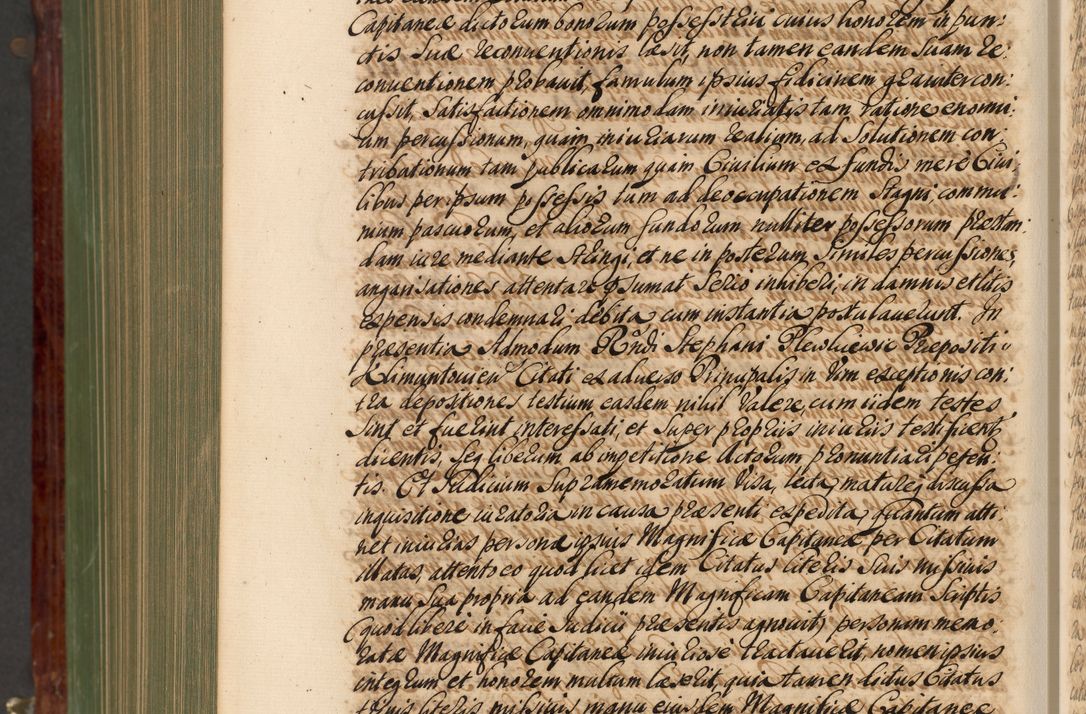 Capitaneæ dictorum bonorum possessæ cuius honorem in pun:
ctis suæ reconventionis læsit, non tamen eandem suam re:
conventionem probavit, famulum ipsius fidicinem graviter con:
cussit, satisfactionem omnimodam iniuriatis tam ratione enormi:
um percussionum, quam iniuriarum realium, ad solutionem con:
tributionum tam publicarum quam Civilium ex fundis mere Civi:
libus per ipsum possessis tum ad deoccupationem stagni, commu:
nium pascuorum, et aliorum fundorum nulliter possessorum præstan:
dam iure mediante stringi, et ne in posterum similes percussiones,
angarisationes attentare præsumat serio inhiberi, in damnis et litis
expensis condemnari debita cum instantia postulaverunt. In
præsentia Admodum Rndi Stephani Præpositi
Klimuntovien Citati ex adverso Principalis in vim exceptionis con:
tra depositiones testium easdem nihil valere, cum iidem testes
sint et fuerint interessati, et super propriis iniuriis testificent
dicentis, seq liberum ab impetitione Actorum pronuntiari peten:
tis. Et Judicium supramemoratum visa, lecta, mature discussa
inquisitione iuratoria in causa præsenti expedita, quantum atti:
net iniurias personæ ipsius Magnificæ Capitaneæ per Citatum
illatas, attento eo quod licet idem Citatus literis suis missivis
manu sua propria ad eandem Magnificam Capitaneam scriptis
(quod libere in facie Judicii præsentis agnovit) personam memo:
ratæ Magnificæ Capitaneæ iniuriose tractaverit, nomen ipsius
integrum et honorem multum læserit, quia tamen dictus Citatus
literis missivis manu eiusdem Magnificæ Capitaneæ